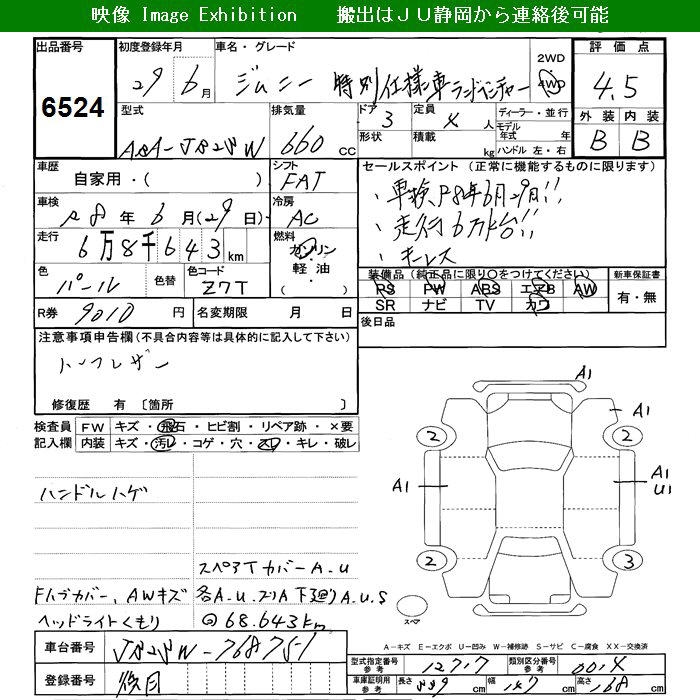 映像 Image Exhibition 搬出はＪＵ静岡から連絡後可能
出品番号 6524
初度登録年月 29 6月
車名・グレード ジムニー 特別仕様車ランドベンチャー
2WD 4WD
評価点 4.5
外装 B 内装 B
型式 ABA-JB23W
排気量 660 cc
ドア 3 形状
定員 4 人 積載 kg
ディーラー・並行
モデル年式 年
ハンドル 左・右
車歴 自家用・( )
シフト FAT
車検 R8年6月(29日)
冷房 AC
走行 6万8千643 km
燃料 ガソリン・軽油・( )
色 パール 色替
色コード Z7T
R券 9010円
名変期限 月 日
セールスポイント (正常に機能するものに限ります)
・車検R8年6月29日!!
・走行6万km台!!
・キーレス
装備品 (純正品に限り○をつけてください)
PS PW ABS エアB AW
SR ナビ TV カワ
新車保証書 有・無
後日品
注意事項申告欄(不具合内容等は具体的に記入して下さい)
ハーフレザー
修復歴 有 〔箇所 〕
検査員記入欄 FW キズ・飛石・ヒビ割・リペア跡・×要
内装 キズ・汚レ・コゲ・穴・スレ・キレ・破レ
ハンドルハゲ
スペアTカバーA.U
各A.U.スリA 下廻りA.U.S
AWキズ
ヘッドライトくもり
68.643km
A1
A1
2 2
A1 A1 U1
2 3
スペア
A-キズ E-エクボ U-凹み W-補修跡 S-サビ C-腐食 XX-交換済
車台番号 JB23W-768751
登録番号 後日
型式指定番号 参考 12717
類別区分番号 参考 0014
車庫証明用 参考 長さ 339 cm 幅 147 cm 高さ 168 cm